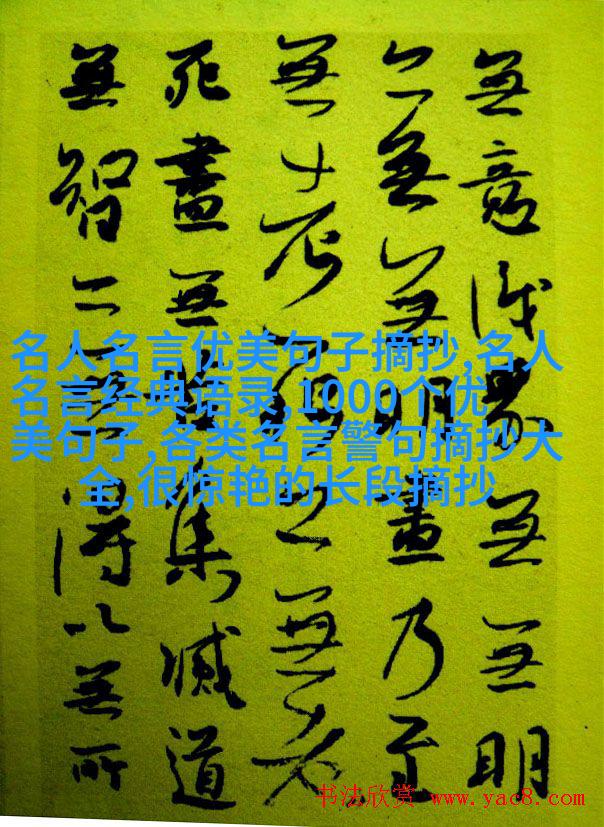 無意識界無無明
亦無無明盡乃至
無老死亦無老
死盡無苦集滅道
無智亦無得以無所
名人名言优美句子摘抄,名人
名言经典语录,1000个优
美句子,各类名言警句摘抄大
全,很惊艳的长段摘抄
书法欣赏 www.yac8.com